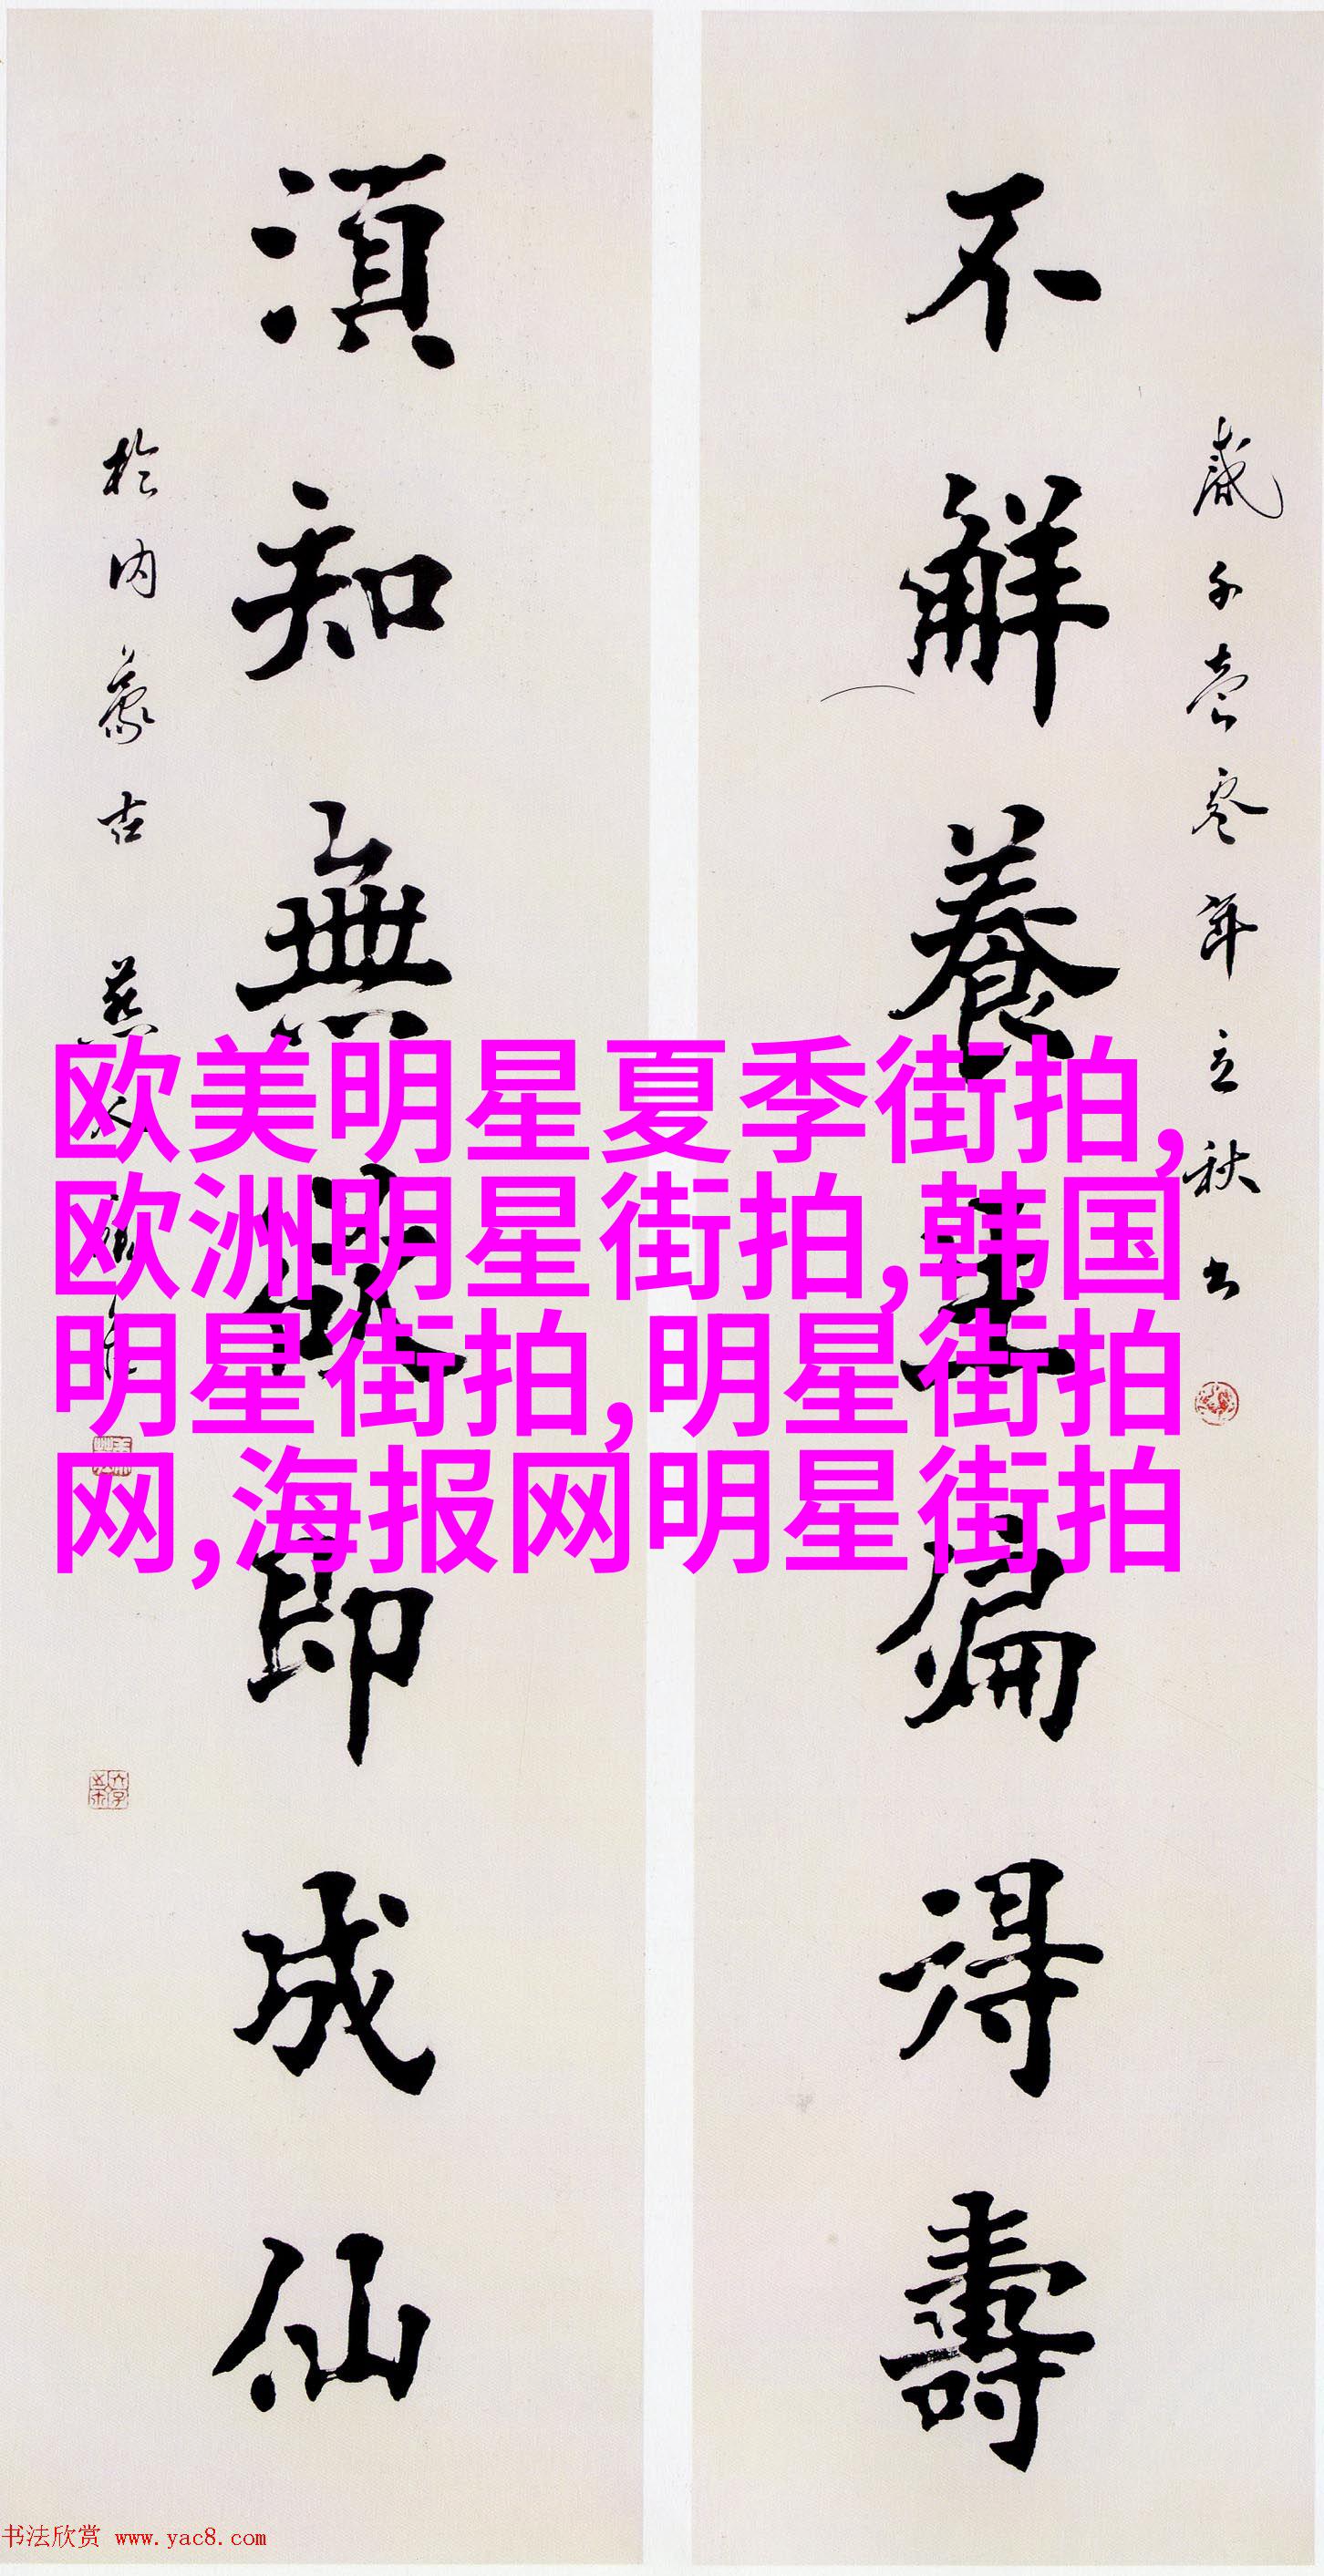 貳千壹零年立秋书
不解養生偏得壽
須知無欲即成仙
於内蒙古
欧美明星夏季街拍,
欧洲明星街拍,韩国
明星街拍,明星街拍
网,海报网明星街拍
书法欣赏 www.yac8.com